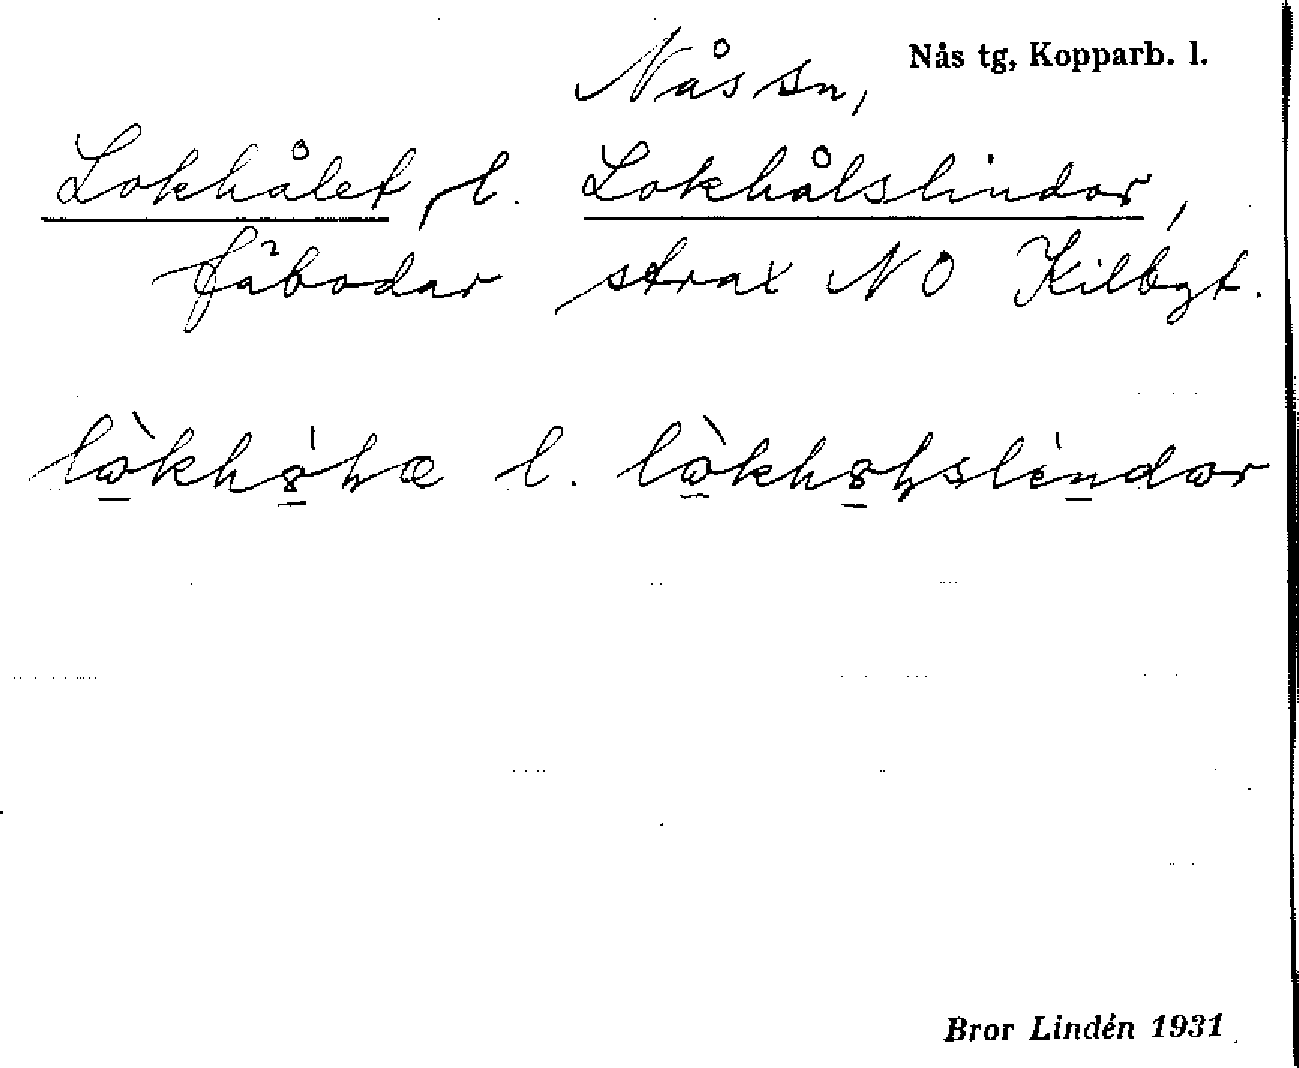 Nås sn, Nås tg, Kopparb. l.
Lokhålet, l. Lokhålslindor,
fäbodar strax NO Kilbgt.
l. 
Bror Lindén 1931